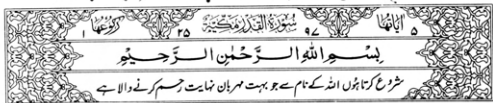 ۵ اٰیاتہا سُوْرَۃُ الْقَدْرِ مَکِّیَّۃٌ ۹۷ ۲۵ رکوعہا ۱
بِسْمِ اللّٰهِ الرَّحْمٰنِ الرَّحِيْمِ
شروع کرتا ہوں اللہ کے نام سے جو بہت مہربان نہایت رحم کرنے والا ہے